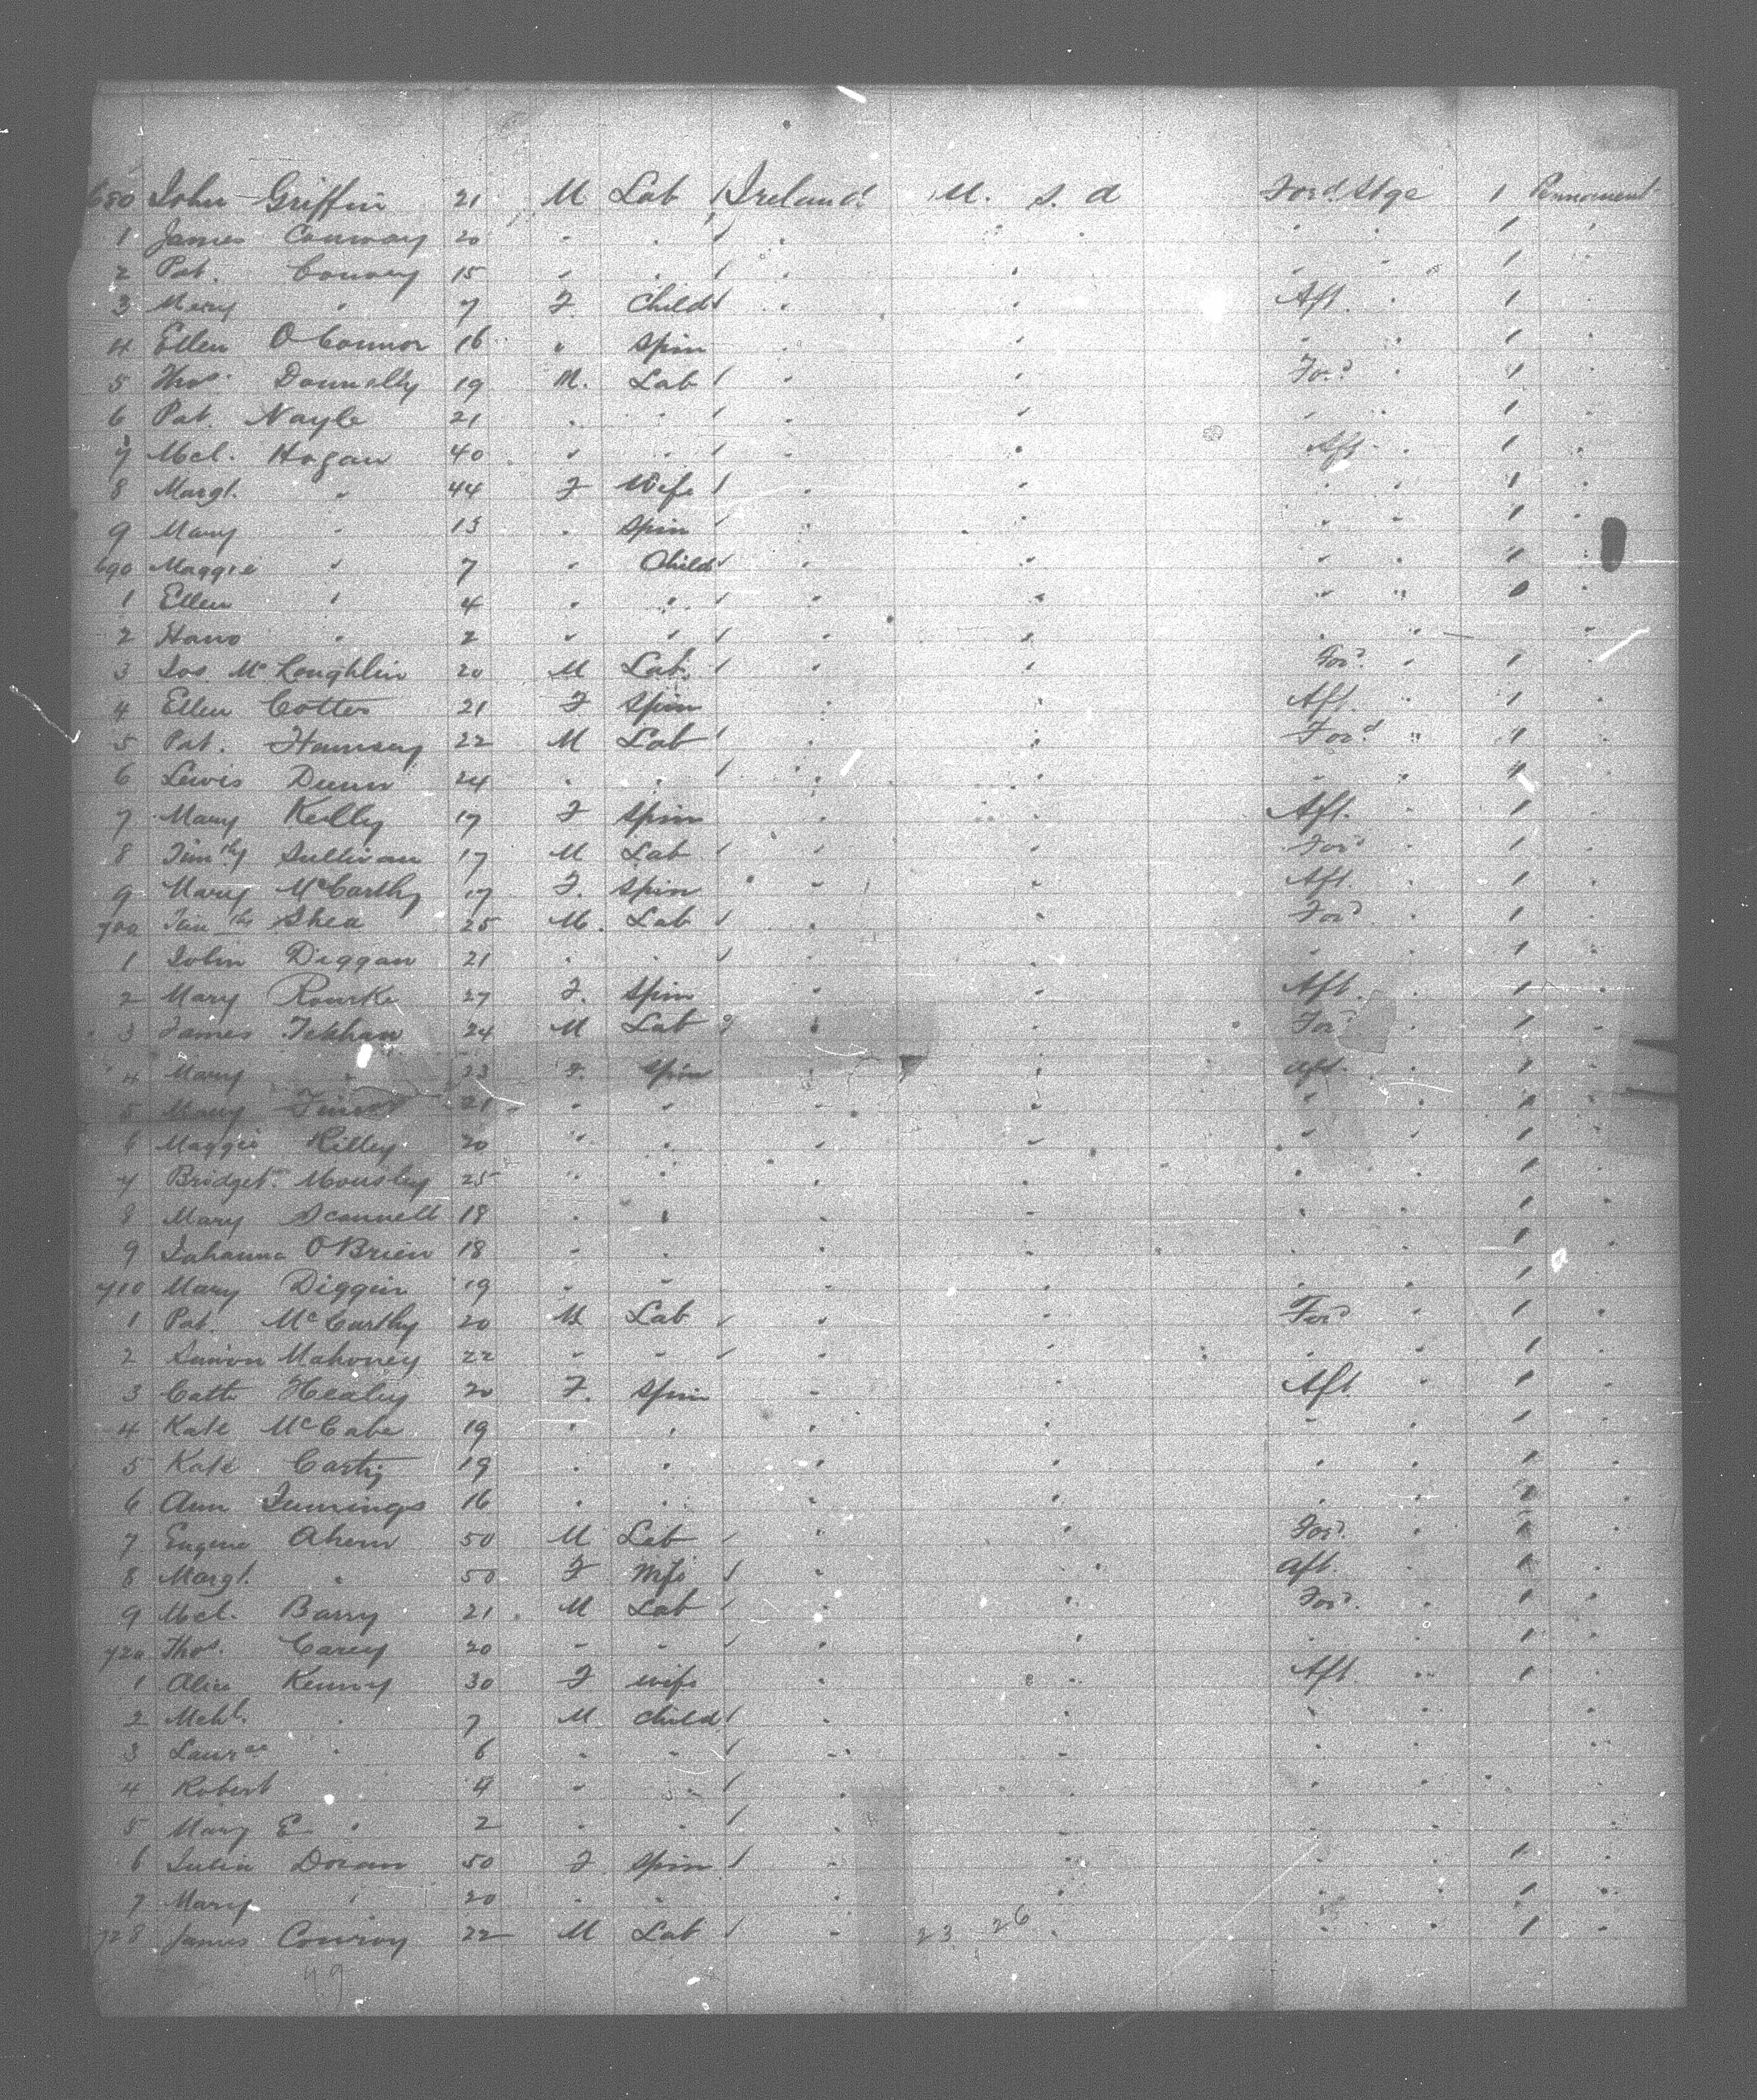 680 John Griffin 21 M Lab Ireland U. S. a For'd. Stge 1 Permanent
1 James Conway 20 " " " " " " 1 "
2 Pat. Convey 15 " " " " " " 1 "
3 Mary " 7 F. Child " " Aft. " 1 "
4 Ellen O'Connor 16 " Spin " " " " 1 "
5 Thos. Donnelly 19 M. Lab " " For'd " 1 "
6 Pat. Nayle 21 " " " " " " 1 "
7 Mcl. Hogan 40 " " " " Aft. " 1 "
8 Margt. " 44 F Wife " " " " 1 "
9 Mary " 13 " Spin " " " " 1 "
690 Maggie " 7 " Child " " " " 1 "
1 Ellen " 4 " " " " " " "
2 Hano " 2 " " " " " " "
3 Jos McLoughlin 20 M Lab. " " For'd. " 1 "
4 Ellen Cotter 21 F Spin " Aft. " 1 "
5 Pat. 22 M Lab " " For'd " 1 "
6 Lewis Dunn 24 " " " " " " 1 "
7 Mary Kelly 17 F Spin " " Aft. " 1 "
8 Timthy Sullivan 17 M Lab " " For'd " 1 "
9 Mary McCarthy 17 F. Spin " " Aft. " 1 "
700 Timthy Shea 25 M. Lab " For'd " 1 "
1 John Diggan 21 " " " " " 1 "
2 Mary Rourke 27 F. Spin " " Aft. " 1 "
3 James 24 M Lab " " For'd " 1 "
4 Mary " 23 F. Spin " " Aft. " 1 "
5 Mary 21 " " " " " 1 "
6 Maggie Hilley 20 " " " " " " 1 "
7 Bridget Mousley 25 " " " " " " 1 "
8 Mary Scannell 18 " " " " " " 1 "
9 Johanna O'Brien 18 " " " " " 1 "
710 Mary Diggin 19 " " " " " 1 "
1 Pat. McCarthy 20 M Lab " " For'd " 1 "
2 Simon Mahoney 22 " " " " " " 1 "
3 Cath Healey 20 F. Spin " " Aft " 1 "
4 Kate McCabe 19 " " " " " " 1 "
5 Kate 19 " " " " " " 1 "
6 Ann Jennings 16 " " " " " " 1 "
7 Eugene Ahern 50 M Lab " " For'd. " 1 "
8 Margt. " 50 F Wife " " Aft. " 1 "
9 Mcl. Barry 21 M Lab " " For'd. " 1 "
720 Thos. Carey 20 " " " " " " 1 "
1 Alice Kenny 30 F wife " " Aft. " 1 "
2 Mchl. " 7 M child " " " "
3 Laurce " 6 " " " " " "
4 Robert 4 " " " " "
5 Mary E. " 2 " " " " " "
6 Julia Doran 50 F Spin " " " 1 "
7 Mary " 20 " " " " " " 1 "
728 James Conroy 22 M Lab " 23 26 " " " 1 "
49